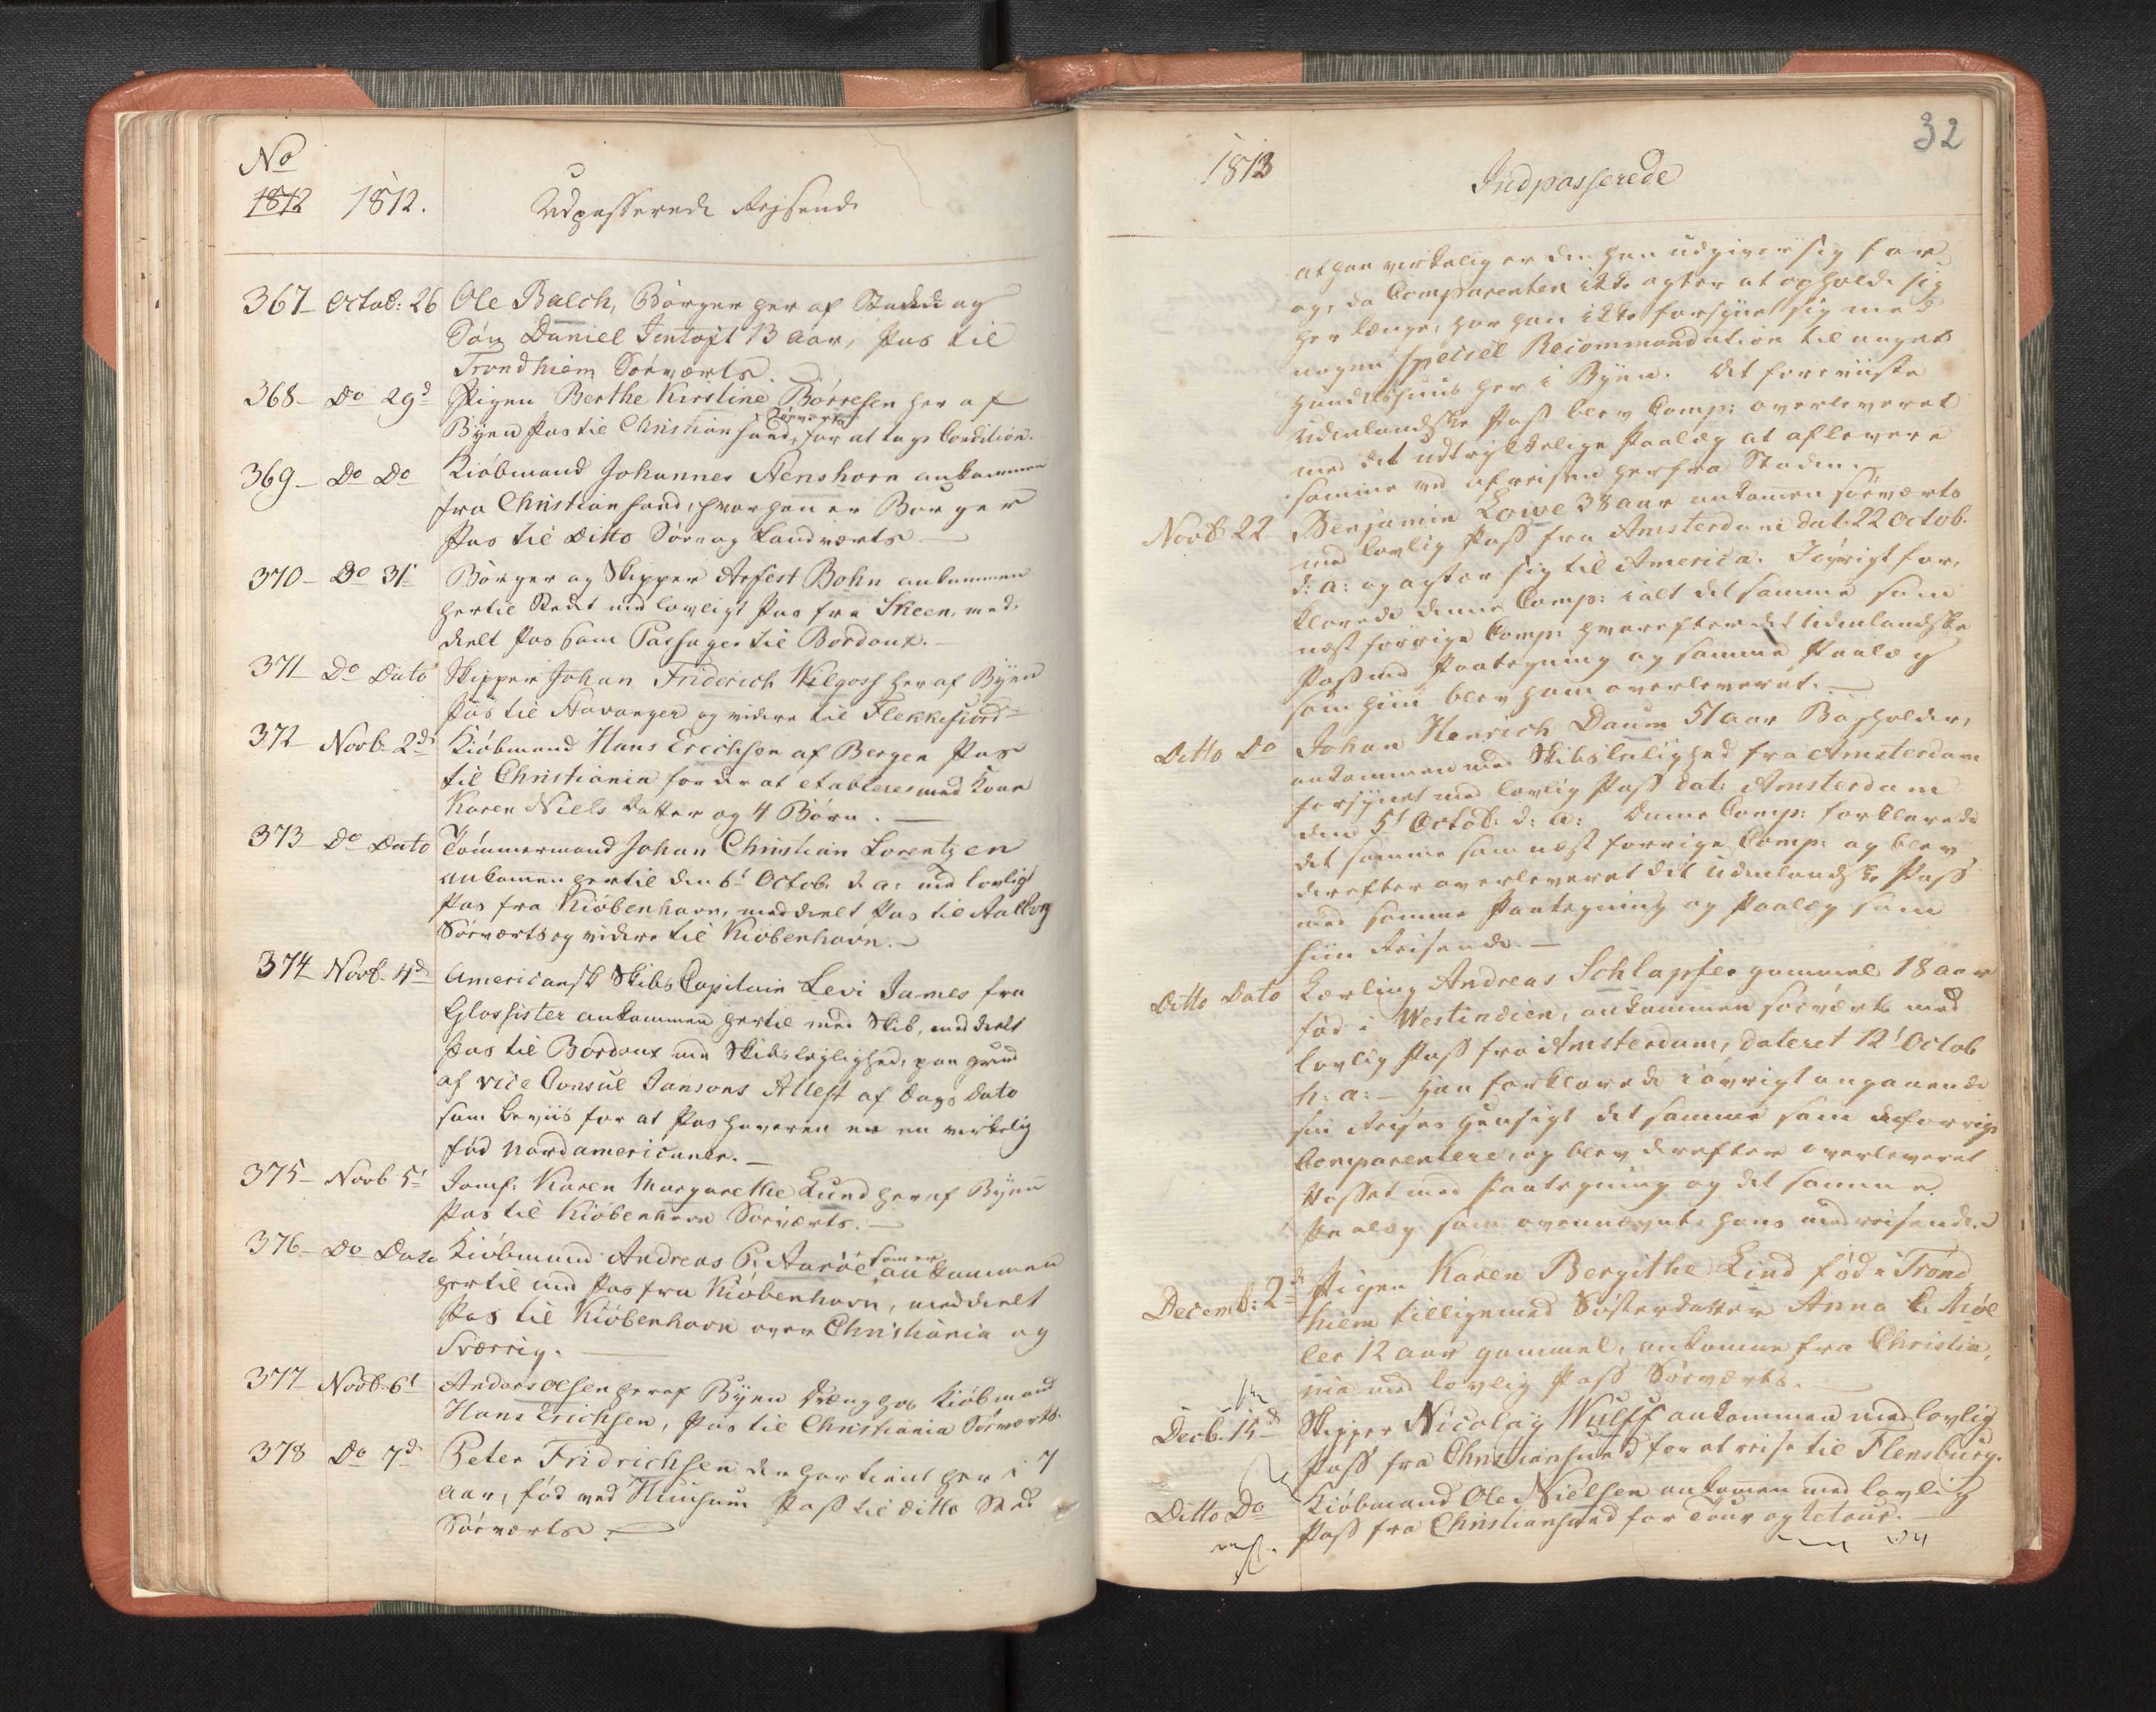 No
1812 1812. Udpasserede Rejsende
367 Octob: 26 Ole Balch, Borger her af Staden og
Søn Daniel Jentoft 13 aar, Pas til
Trondhiem Søeværts.
368 Do 29d Pigen Berthe Kirstine Børresen her af
Søeværts
Byen Pas til Christiansand, for at tage Condition.
369 Do Do Kiøbmand Johannes Stenshorn ankommen
fra Christiansand, hvor han er Borger
Pas til Ditto Søe og Landværts
370 Do 31t Borger og Skipper Arfest Bohn ankommen
hertil Stadet med lovligt Pas fra Skeen, med-
deelt Pas som Passager til Bordoux.
371 Do Dato Skipper Johan Friderich Wilgoss her af Byen
Pas til Stavanger og videre til Flekkefiord
372 Novb. 2d Kiøbmand Hans Erichsen af Bergen Pas
til Christiania for der at etableres med Kone
Karen Niels Datter og 4 Børn.
373 Do Dato Tømmermand Johan Christian Lorentzen
ankommen hertil den 6t Octob. d. a: med lovligt
Pas fra Kiøbenhavn, meddeelt Pas til Aalborg
Søeværts og videre til Kiøbenhavn.
374 Novb. 4d Americansk Skibs Capitain Levi James fra
Glossister ankommen hertil med Skib, meddeelt
Pas til Bordoux med Skibsleylighed, paa grund
af vice Consul Jansons Attest af Dags Dato
som beviis for at Pashaveren er en virkelig
fød nordamericaner.
375 Novb 5t Jomf: Karen Margarethe Lund her af Byen
Pas til Kiøbenhavn Søeværts.
376 Do Dato Kiøbmand Andreas P. Auröe som er ankommen
hertil med Pas fra Kiøbenhavn, meddeelt
Pas til Kiøbenhavn over Christiania og
Sverrig.
377 Novb. 6t Anders Olsen her af Byen Dreng hos Kiøbmand
Hans Erichsen, Pas til Christiania Søeværts.
378 Do 7d Peter Fridrichsen der har tient her i 7
aar, fød ved Huusum Pass til ditto Sted
Søeværts.
32
1812 Indpasserede
at han virkelig er den han udgiver sig for
og, da Comparenten ikke agter at opholde sig
her længe, har han ikke forsynet sig med
nogen speciel Recommandation til noget
Handelshuus her i Byen. Det foreviiste
udenlandske Pass blev Comp: overleveret
med det udtrykkelige Paalæg at aflevere
samme ved afreisen herfra Staden.
Novb 22 Benjamin Lowe 38 aar ankommen søeværts
med lovlig Pass fra Amsterdam dat. 22 Octob.
d: a: og agter sig til America. Iøvrigt for-
klarede denne Comp: i alt det samme som
næst forrige Comp: hvorefter det udenlandske
Pass med Paategning og samme Paalæg
som hiin blev ham overleveret.
Ditto Do Johan Henrich Daum 51 aar Bogholder,
ankommen med Skibsleilighed fra Amsterdam
forsynet med lovlig Pass dat: Amsterdam
den 5t Octob. d: a: Denne Comp: forklarede
det samme som næst forrige Comp: og blev
derefter overleveret det udenlandske Pass
med samme Paategning og Paalæg som
hiin Reisende.
Ditto Dato Lærling Andreas Schlapfer gammel 18 aar
fød i Westindien, ankommen søeværts med
lovlig Pass fra Amsterdam, dateret 12t Octob
h: a: Han forklarede iøvrigt angaaende
sin Reises Hensigt det samme som de forrige
Comparentere, og blev derefter overleveret
Passet med Paategning og det samme
Paalæg som ovennævnte hans medreisende.
Decemb: 2d Pigen Karen Bergithe Lind fød i Trond
hiem tilligemed Søsterdatter Anna C. Møl
ler 12 aar gammel, ankomne fra Christia-
nia med lovlig Pass Søeværts.
Decb. 15d Skipper Nicolay Wulff ankommen med lovlig
Pass fra Christiansund for at reise til Flensburg.
Ditto Do Kiøbmand Ole Nielsen ankommen med lovlig
Pass fra Christiansund for Tour og retour.